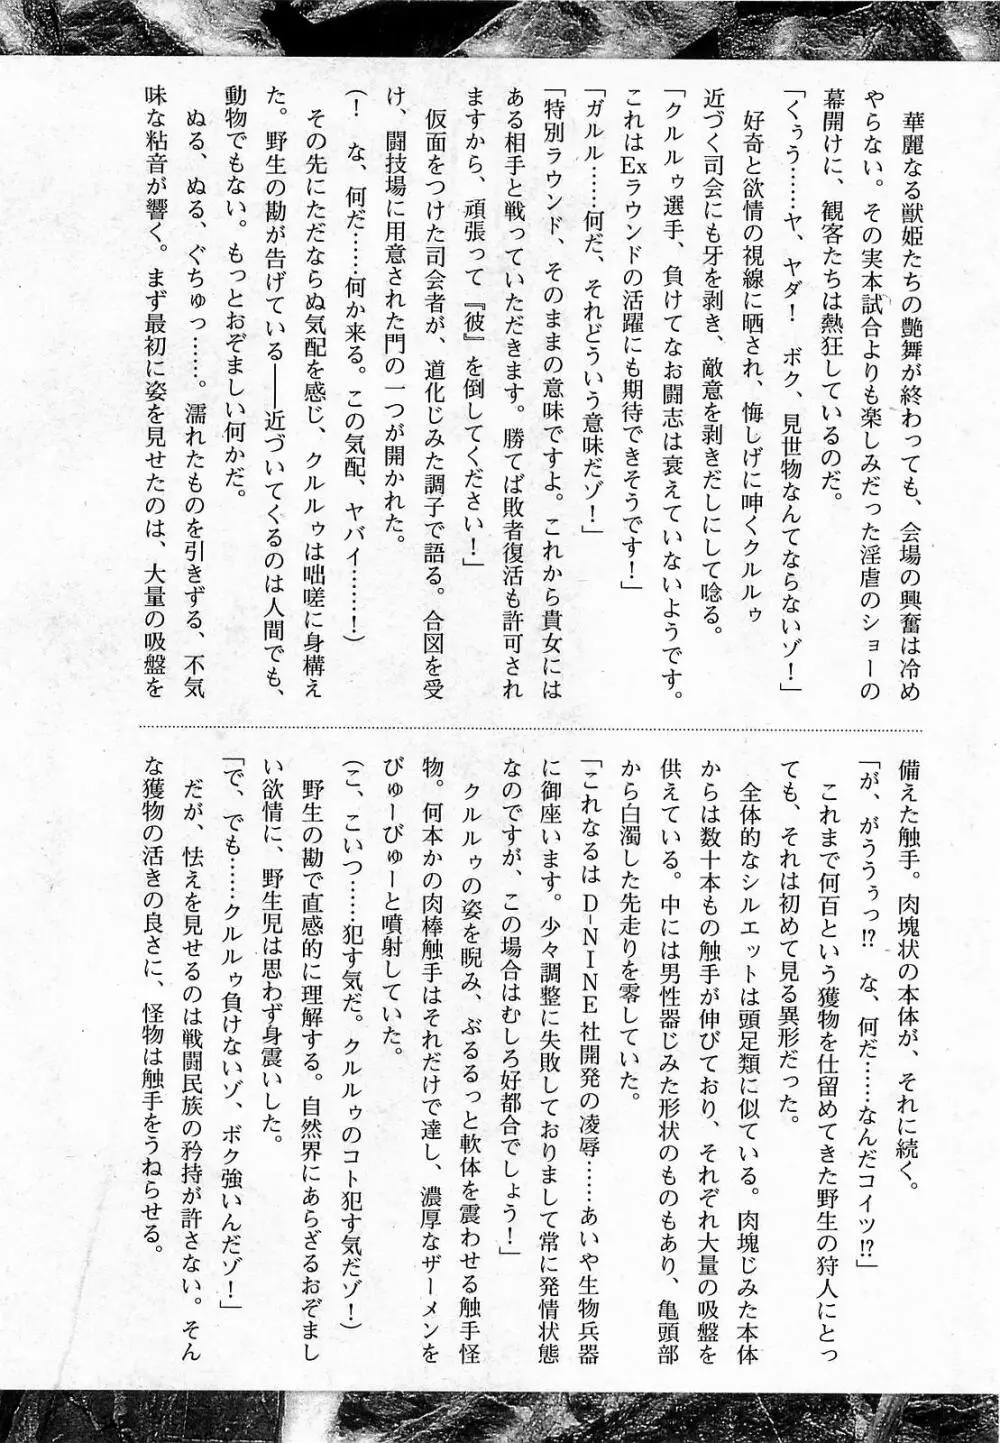 華麗なる獣姫たちの艶舞が終わっても、会場の興奮は冷め
やらない。その実本試合よりも楽しみだった淫虐のショーの
幕開けに、観客たちは熱狂しているのだ。
「くぅう……ヤ、ヤダ！　ボク、見世物なんてならないゾ！」
好奇と欲情の視線に晒され、悔しげに呻くクルルゥ
近づく司会にも牙を剥き、敵意を剥きだしにして唸る。
「クルルゥ選手、負けてなお闘志は衰えていないようです。
これはExラウンドの活躍にも期待できそうです！」
「ガルル……何だ、それどういう意味だゾ！」
「特別ラウンド、そのままの意味ですよ。これから貴女には
ある相手と戦っていただきます。勝てば敗者復活も許可され
ますから、頑張って『彼』を倒してください！」
仮面をつけた司会者が、道化じみた調子で語る。合図を受
け、闘技場に用意された門の一つが開かれた。
（！　な、何だ……何か来る。この気配、ヤバイ……！）
その先にただならぬ気配を感じ、クルルゥは咄嗟に身構え
た。野生の勘が告げている――近づいてくるのは人間でも、
動物でもない。もっとおぞましい何かだ。
ぬる、ぬる、ぐちゅっ……。濡れたものを引きずる、不気
味な粘音が響く。まず最初に姿を見せたのは、大量の吸盤を
備えた触手。肉塊状の本体が、それに続く。
「が、がううぅっ⁉　な、何だ……なんだコイツ⁉」
これまで何百という獲物を仕留めてきた野生の狩人にとっ
ても、それは初めて見る異形だった。
全体的なシルエットは頭足類に似ている。肉塊じみた本体
からは数十本もの触手が伸びており、それぞれ大量の吸盤を
供えている。中には男性器じみた形状のものもあり、亀頭部
から白濁した先走りを零していた。
「これなるはD-NINE社開発の凌辱……あいや生物兵器
に御座います。少々調整に失敗しておりまして常に発情状態
なのですが、この場合はむしろ好都合でしょう！」
クルルゥの姿を睨み、ぶるるっと軟体を震わせる触手怪
物。何本かの肉棒触手はそれだけで達し、濃厚なザーメンを
びゅーびゅーと噴射していた。
（こ、こいつ……犯す気だ。クルルゥのコト犯す気だゾ！）
野生の勘で直感的に理解する。自然界にあらざるおぞまし
い欲情に、野生児は思わず身震いした。
「で、でも……クルルゥ負けないゾ、ボク強いんだゾ！」
だが、怯えを見せるのは戦闘民族の矜持が許さない。そん
な獲物の活きの良さに、怪物は触手をうねらせる。